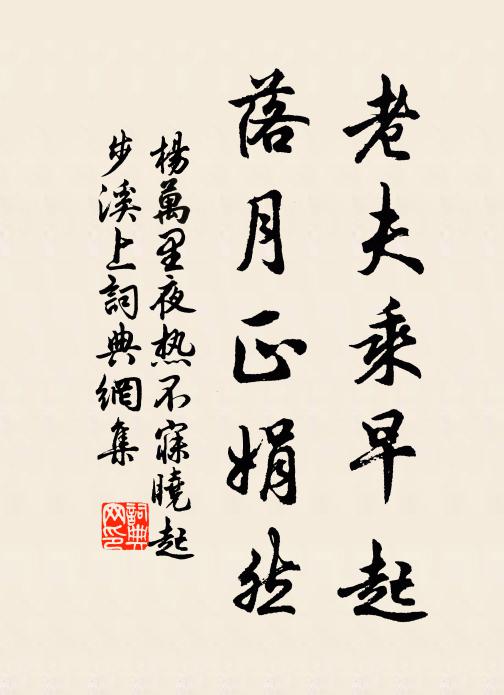 老夫乘早起
落月正娟然
楊萬里夜热不寐曉起
步溪上詞典網集
詞典网印